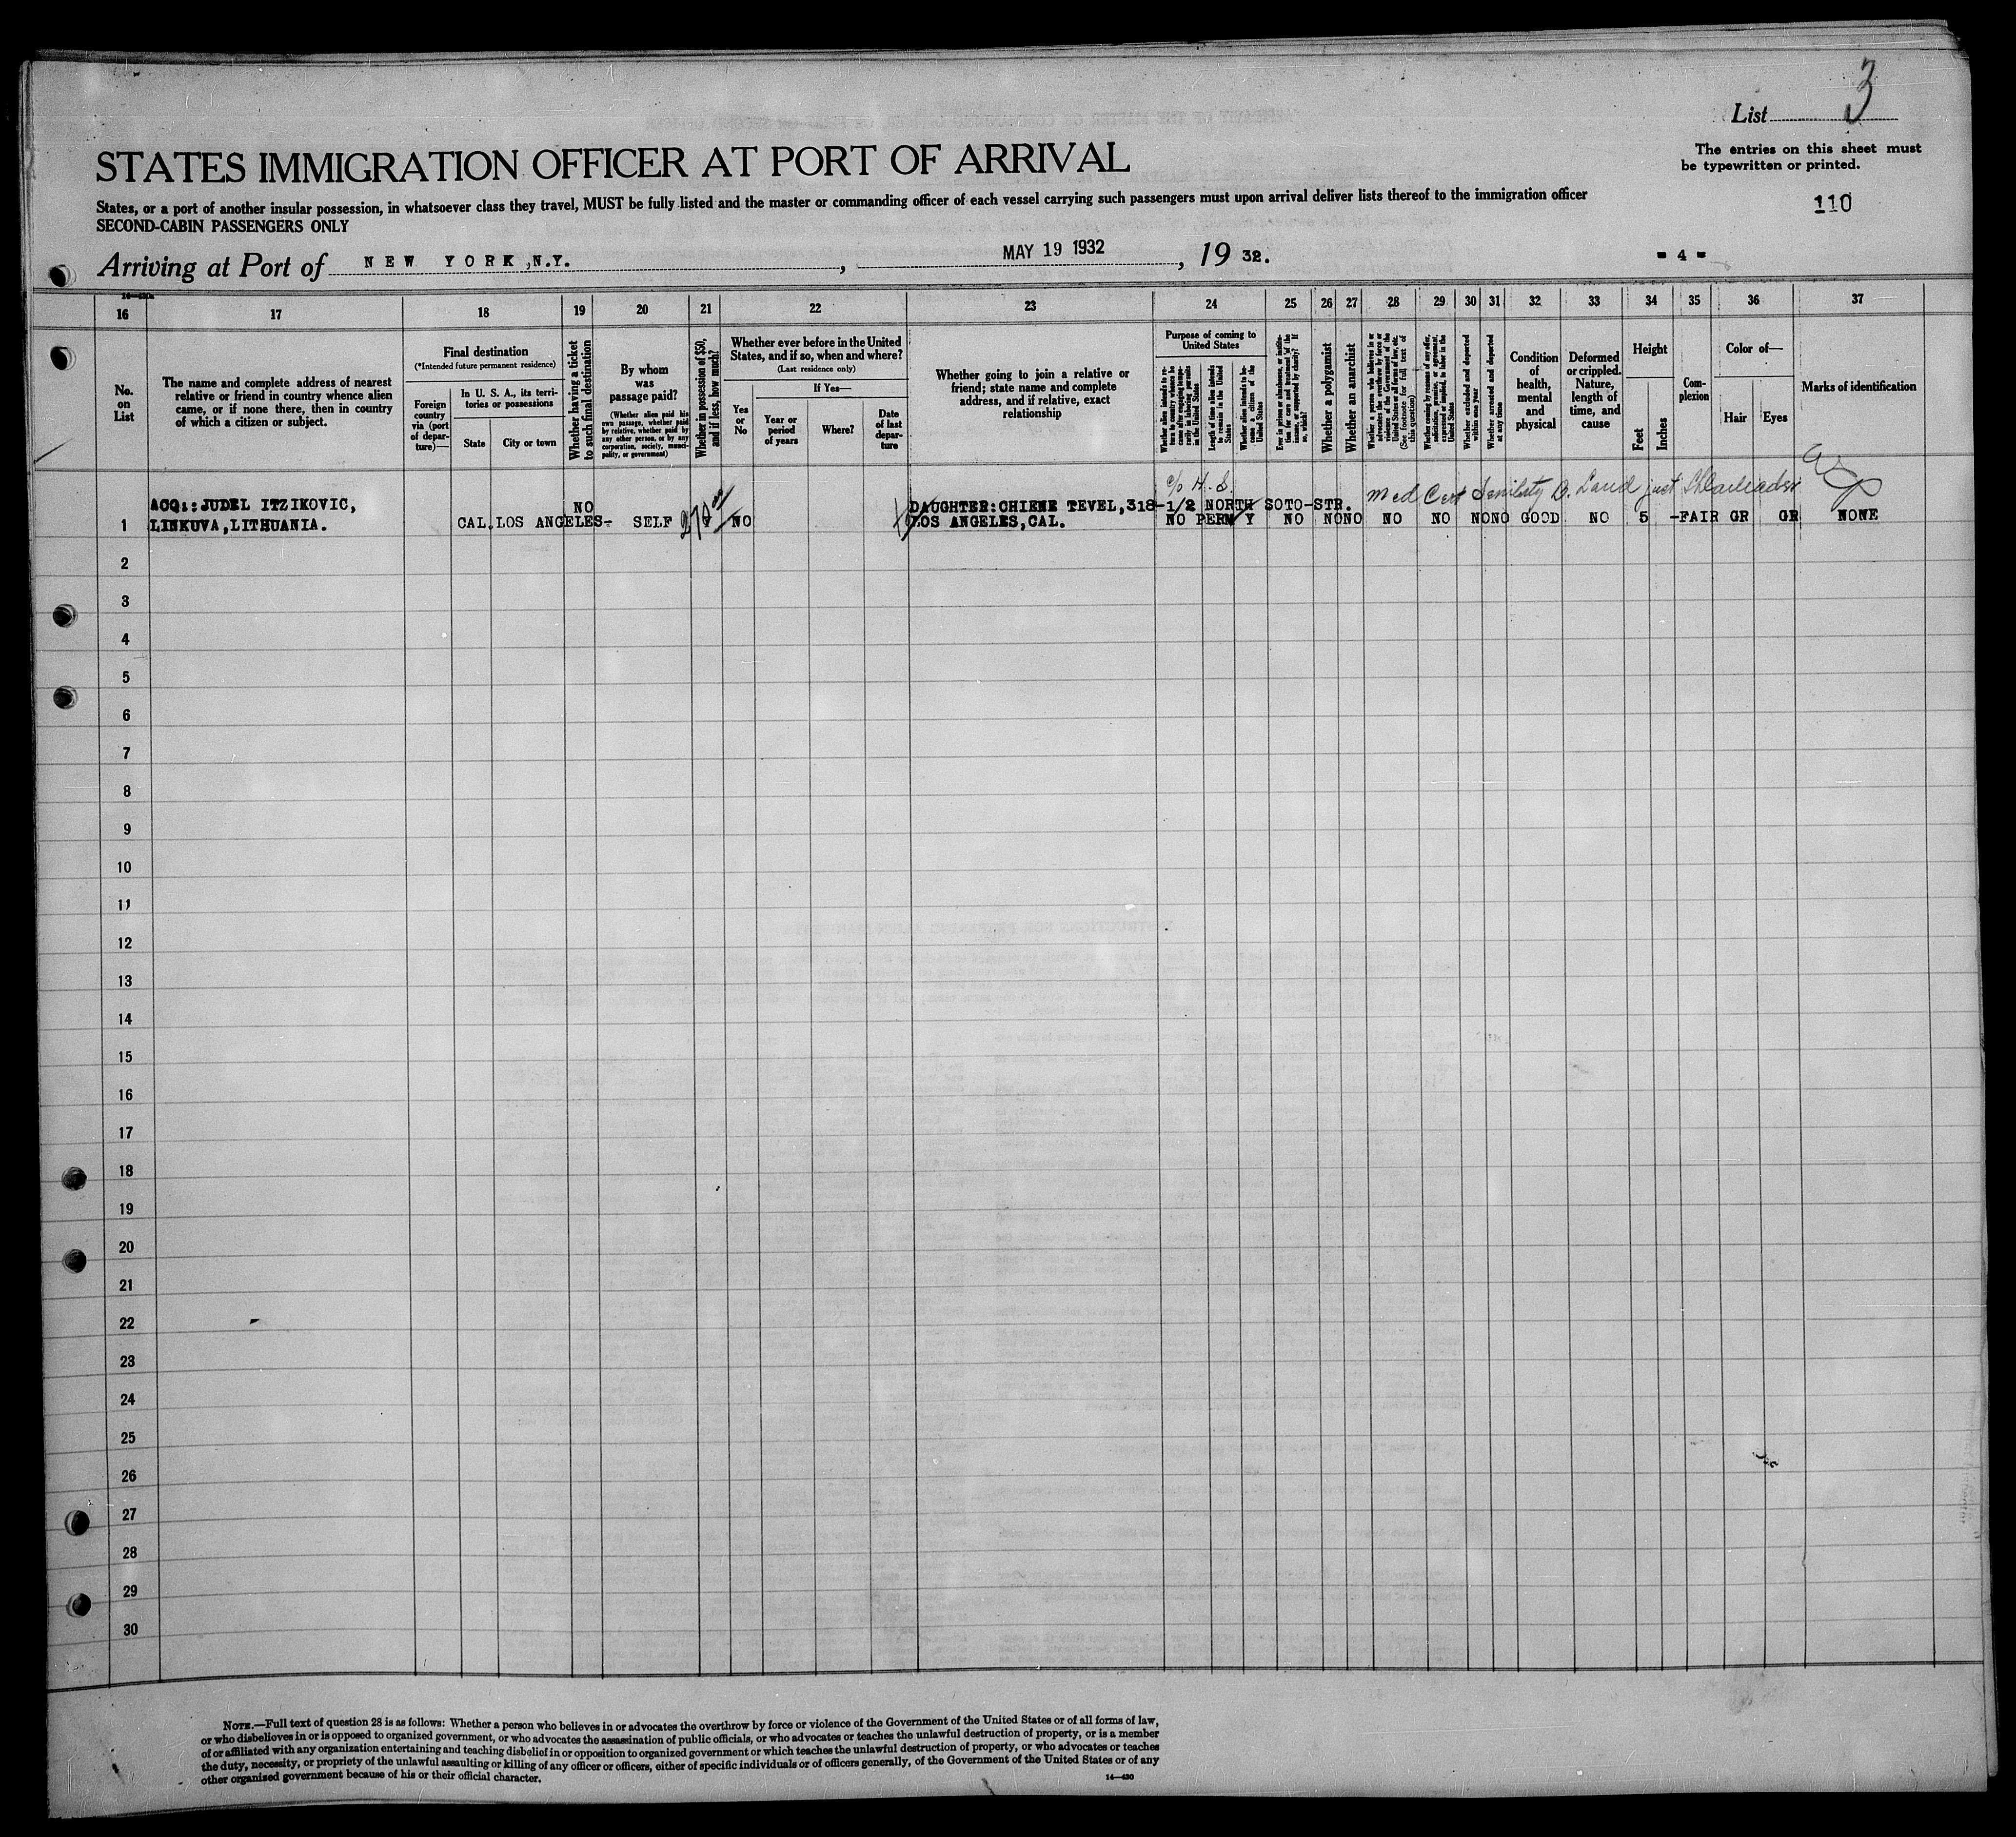 List 3
The entries on this sheet must
be typewritten or printed.
STATES IMMIGRATION OFFICER AT PORT OF ARRIVAL
110
States, or a port of another insular possession, in whatsoever class they travel, MUST be fully listed and the master or commanding officer of each vessel carrying such passengers must upon arrival deliver lists thereof to the immigration officer
SECOND-CABIN PASSENGERS ONLY
Arriving at Port of NEW YORK, N.Y. , MAY 19 1932 , 19 32.
- 4 -
16 17 18 19 20 21 22 23 24 25 26 27 28 29 30 31 32 33 34 35 36 37
No. on List
The name and complete address of nearest
relative or friend in country whence alien
came, or if none there, then in country
of which a citizen or subject.
Final destination
(*Intended future permanent residence)
Foreign country via (port of departure)—
In U. S. A., its territories or possessions
State
City or town
Whether having a ticket to such final destination
By whom was passage paid?
(Whether alien paid his own passage, whether paid by relative, whether paid by any other person, or by any corporation, society, municipality, or government)
Whether in possession of $50, and if less, how much?
Whether ever before in the United
States, and if so, when and where?
(Last residence only)
Yes or No
If Yes—
Year or period of years
Where?
Date of last departure
Whether going to join a relative or
friend; state name and complete
address, and if relative, exact
relationship
Purpose of coming to United States
Whether alien intends to return to country whence he came after engaging temporarily in laboring pursuits in the United States
Length of time alien intends to remain in the United States
Whether alien intends to become a citizen of the United States
Ever in prison or almshouse, or institution for care and treatment of the insane, or supported by charity? If so, which?
Whether a polygamist
Whether an anarchist
Whether a person who believes in or advocates the overthrow by force or violence of the Government of the United States or all forms of law, etc. (See footnote for full text of this question)
Whether coming by reason of any offer, solicitation, promise, or agreement, expressed or implied, to labor in the United States
Whether excluded and deported within one year
Whether arrested and deported at any time
Condition of health, mental and physical
Deformed or crippled. Nature, length of time, and cause
Height
Feet
Inches
Complexion
Color of—
Hair
Eyes
Marks of identification
c/o H. S.
Med Cert Senility D. Land just
ACQ.: JUDEL ITZIKOVIC, NO DAUGHTER: CHIENE TEVEL, 318-1/2 NORTH SOTO-STR.
1 LINKUVA, LITHUANIA. CAL. LOS ANGELES- SELF NO LOS ANGELES, CAL. NO PERM Y NO NO NO NO NO NO NO GOOD NO 5 - FAIR GR GR NONE
2
3
4
5
6
7
8
9
10
11
12
13
14
15
16
17
18
19
20
21
22
23
24
25
26
27
28
29
30
NOTE.—Full text of question 28 is as follows: Whether a person who believes in or advocates the overthrow by force or violence of the Government of the United States or of all forms of law,
or who disbelieves in or is opposed to organized government, or who advocates the assassination of public officials, or who advocates or teaches the unlawful destruction of property, or is a member
of or affiliated with any organization entertaining and teaching disbelief in or opposition to organized government or which teaches the unlawful destruction of property, or who advocates or teaches
the duty, necessity, or propriety of the unlawful assaulting or killing of any officer or officers, either of specific individuals or of officers generally, of the Government of the United States or of any
other organized government because of his or their official character.
14—430